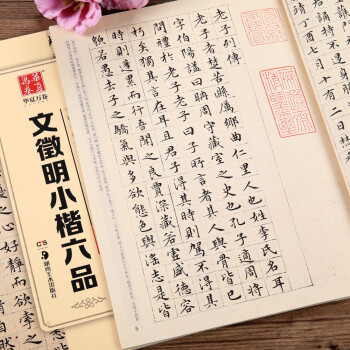 靖丁酉七月十有二日
老子列傳
老子者楚苦縣厲鄉曲仁里人也姓李氏名耳
字伯陽謚曰聃周守藏室之史也孔子適周將
問禮於老子老子曰子所言者其人與骨皆已
朽矣獨其言在耳且君子得其時則駕不得其
時則蓬累而行吾聞之良賈深藏若虛盛德容
貌若愚去子之驕氣與多欲態色與淫志是皆
华夏万卷
文徵明小楷六品
湖南美术出版社
心好靜而欲
自然